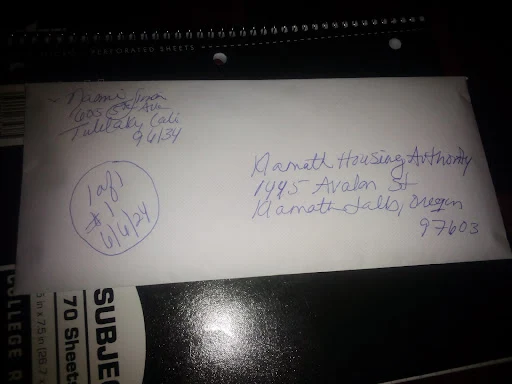 PERFORATED SHEETS
Naomi
605 Ave
Tulelake, Cali
96134
Klamath Housing Authority
1445 Avalon St
Klamath Falls, Oregon
97603
1 of 1
# 1
6/6/24
SUBJE
70 Sheets
COLLEGE R